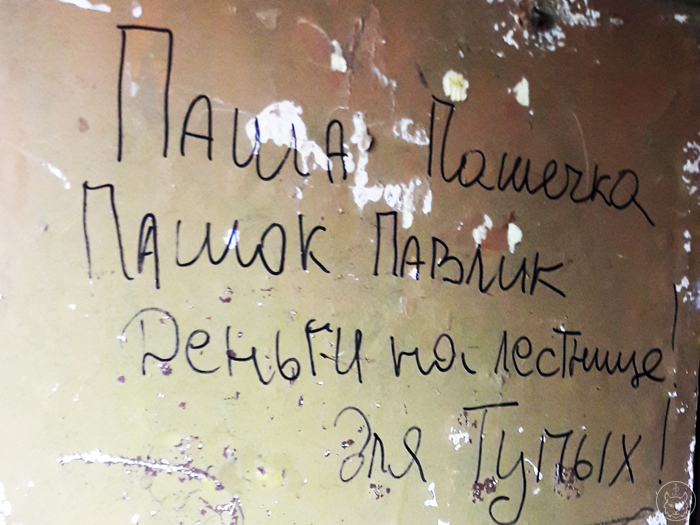 Паша Пашечка
Пашок Павлик
Деньги на лестнице!
Для Тупых!